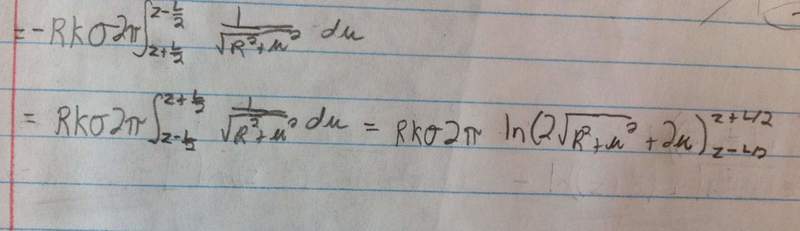 = -Rkσ2π ∫_{z+L/2}^{z-L/2} 1/√(R²+u²) du
= Rkσ2π ∫_{z-L/2}^{z+L/2} 1/√(R²+u²) du = Rkσ2π ln(2√(R²+u²) + 2u)_{z-L/2}^{z+L/2}